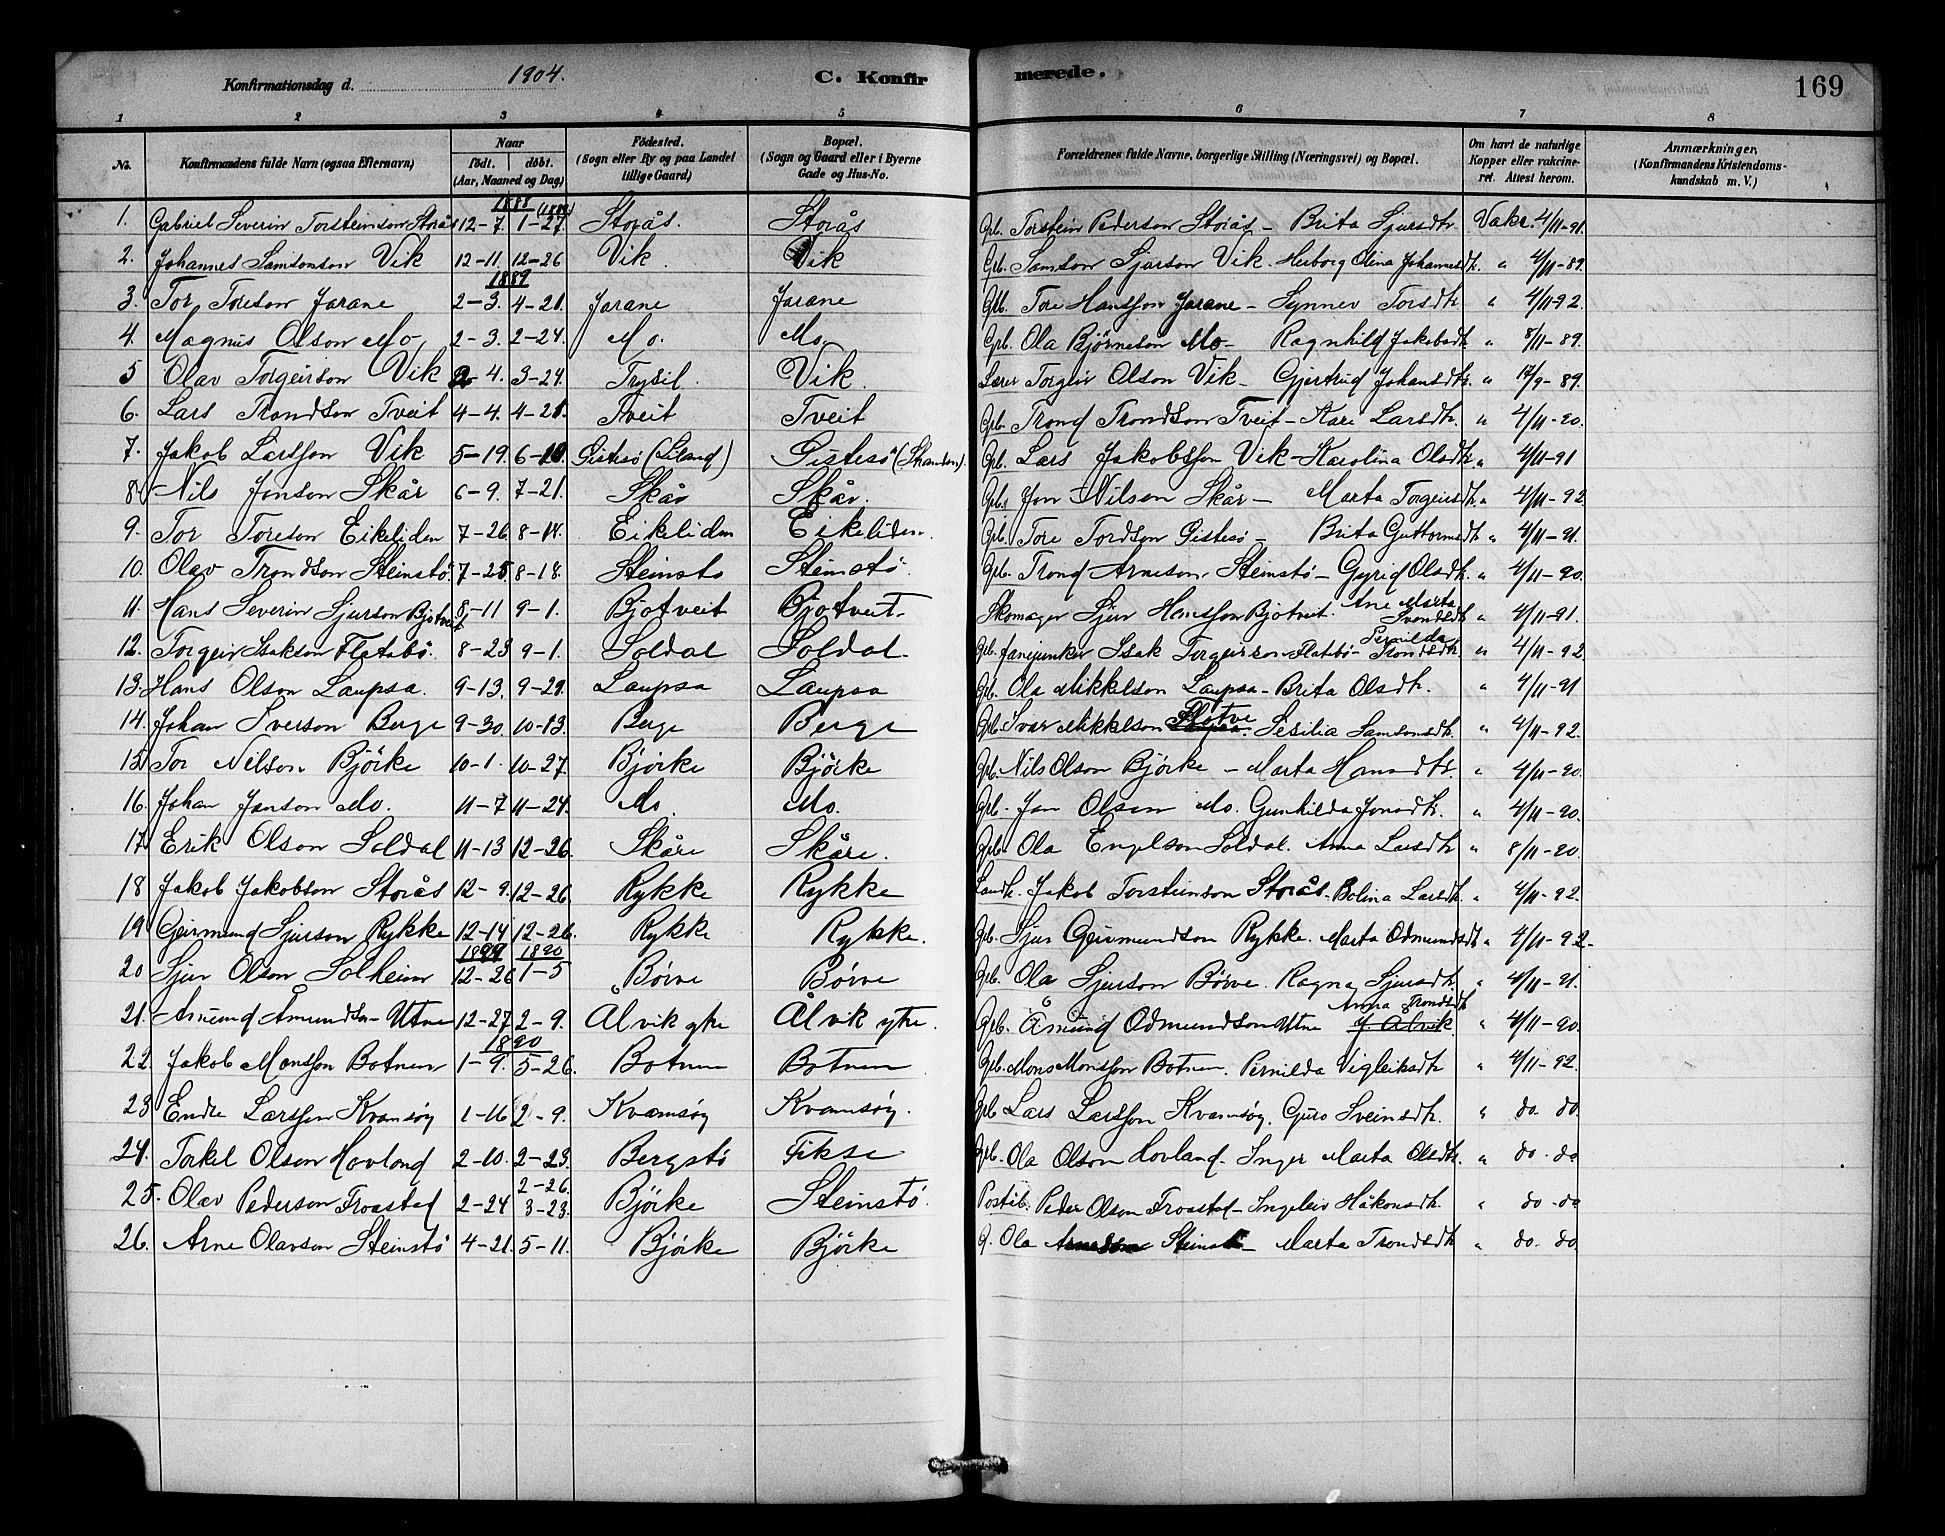 Konfirmationsdag d. 1904. C. Konfirmerede. 169
1 2 3 4 5 6 7 8
No. Konfirmandens fulde Navn (ogsaa Efternavn) Naar født. døbt. (Aar, Maaned og Dag) Födested. (Sogn eller By og paa Landet tillige Gaard) Bopæl. (Sogn og Gaard eller i Byerne Gade og Hus-No. Forældrenes fulde Navne, borgerlige Stilling (Næringsvei) og Bopæl. Om havt de naturlige Kopper eller vakcineret. Attest herom. Anmærkninger, (Konfirmandens Kristendomskundskab m. V.)
1888 (1889)
1. Gabriel Severin Torsteinson Storås 12-7. 1-27. Storås. Storås Grb. Torstein Pederson Storås - Brita Sjursdtr. Vakc. 4/11-91.
2. Johannes Samsonson Vik 12-11. 12-26 Vik. Vik Grb. Samson Sjurson Vik - Herborg Olina Johannesdtr. " 4/11-89.
1889
3. Tor Toreson Jarane 2-3. 4-21. Jarane Jarane Grb. Tore Hansson Jarane - Synnev Torsdtr. " 4/11-92.
4. Magnus Olson Mo 2-3. 2-24. Mo. Mo Grb. Ola Björneson Mo - Ragnhild Jakobsdtr " 8/11-89.
5 Olav Torgeirson Vik 2-4. 3-24. Trysil. Vik. Lærer Torgeir Olson Vik - Gjertrud Johansdtr. " 12/9-89.
6. Lars Trondson Tveit 4-4. 4-21. Tveit Tveit Grb. Trond Trondson Tveit - Kari Larsdtr. " 4/11-90.
7. Jakob Larsson Vik 5-19. 6-10. Gistesö (Liland) Gistesö (Skanden). Grb. Lars Jakobsson Vik - Karolina Olsdtr. " 4/11-91
8. Nils Jonson Skår 6-9. 7-21. Skår Skår. Grb. Jon Nilson Skår - Marta Torgeirsdtr. " 4/11-92
9. Tor Toreson Eikeliden 7-26. 8-14. Eikeliden Eikeliden. Grb. Tore Tordson Gistesö - Brita Guttormsdtr " 4/11-91.
10. Olav Trondson Steinstö 7-25. 8-18. Steinstö Steinstö Grb. Trond Arneson Steinstö - Gyrid Olsdtr. " 4/11-90.
11. Hans Severin Sjurson Bjotveit 8-11 9-1. Bjotveit Bjotveit. Skomager Sjur Hansson Bjotveit. Ane Marta Trondsdtr " 4/11-91.
12. Torgeir Isakson Flatabö. 8-23 9-1. Soldal Soldal. Grb. fanejunker Isak Torgeirson Flatebö - Pernilda Trondsdtr. " 4/11-92.
13. Hans Olson Laupsa. 9-13. 9-29. Laupsa Laupsa Grb. Ola Mikkelson Laupsa - Brita Olsdtr. " 4/11-91
14. Johan Iverson Berge 9-30. 10-13. Berge Berge Grb. Ivar Mikkelson Flotve. Sesilia Samsonsdtr. " 4/11-92.
15. Tor Nilson Björke 10-1. 10-27. Björke Björke Grb. Nils Olson Björke - Marta Hansdtr. " 4/11-90.
16. Johan Janson Mo. 11-7 11-24. Mo. Mo. Grb. Jan Olson Mo. Gunhilda Jonsdtr. " 4/11-90.
17. Erik Olson Soldal 11-13 12-26. Skåre Skåre. Grb. Ola Engelson Soldal. Anna Larsdtr " 8/11-90.
18 Jakob Jakobson Storås 12-9. 12-26. Rykke Rykke Landh. Jakob Torsteinson Storås. Bolina Larsdtr. " 4/11-92.
19 Geirmund Sjurson Rykke 12-14 12-26. Rykke Rykke. Grb. Sjur Geirmundson Rykke. Marta Odmundsdtr " 4/11-92-
1889 1890
20 Sjur Olson Solheim 12-26 1-5 Börve Börve Grb. Ola Sjurson Börve. Ragna Sjursdtr. " 4/11-91.
21. Åmund Åmundson Utne 12-27 2-9. Ålvik ytre Ålvik ytre. Grb. Åmund Odmundson Utne Anna Trondsdtr " 4/11-90.
1890
22. Jakob Monsson Botnen 1-9. 5-26. Botnen Botnen Grb. Mons Monsson Botnen. Pernilda Vigleiksdtr " 4/11-92.
23 Endre Larsson Kvamsöy 1-16 2-9. Kvamsöy Kvamsöy. Grb Lars Larsson Kvamsöy. Guro Sveinsdtr. " do. do.
24. Torkel Olson Hovland 2-10. 2-23. Bergstö Fikse Grb. Ola Olson Hovland - Inger Marta Olsdtr. " do. do
25. Olav Pederson Froastad 2-24 2-26. 3-23. Björke Steinstö Postib. Peder Olson Froastad - Ingeleiv Håkonsdtr. " do. do
26. Arne Olavson Steinstö 4-21. 5-11. Björke Björke G. Ola Steinstö - Marta Trondsdtr. " do. do.